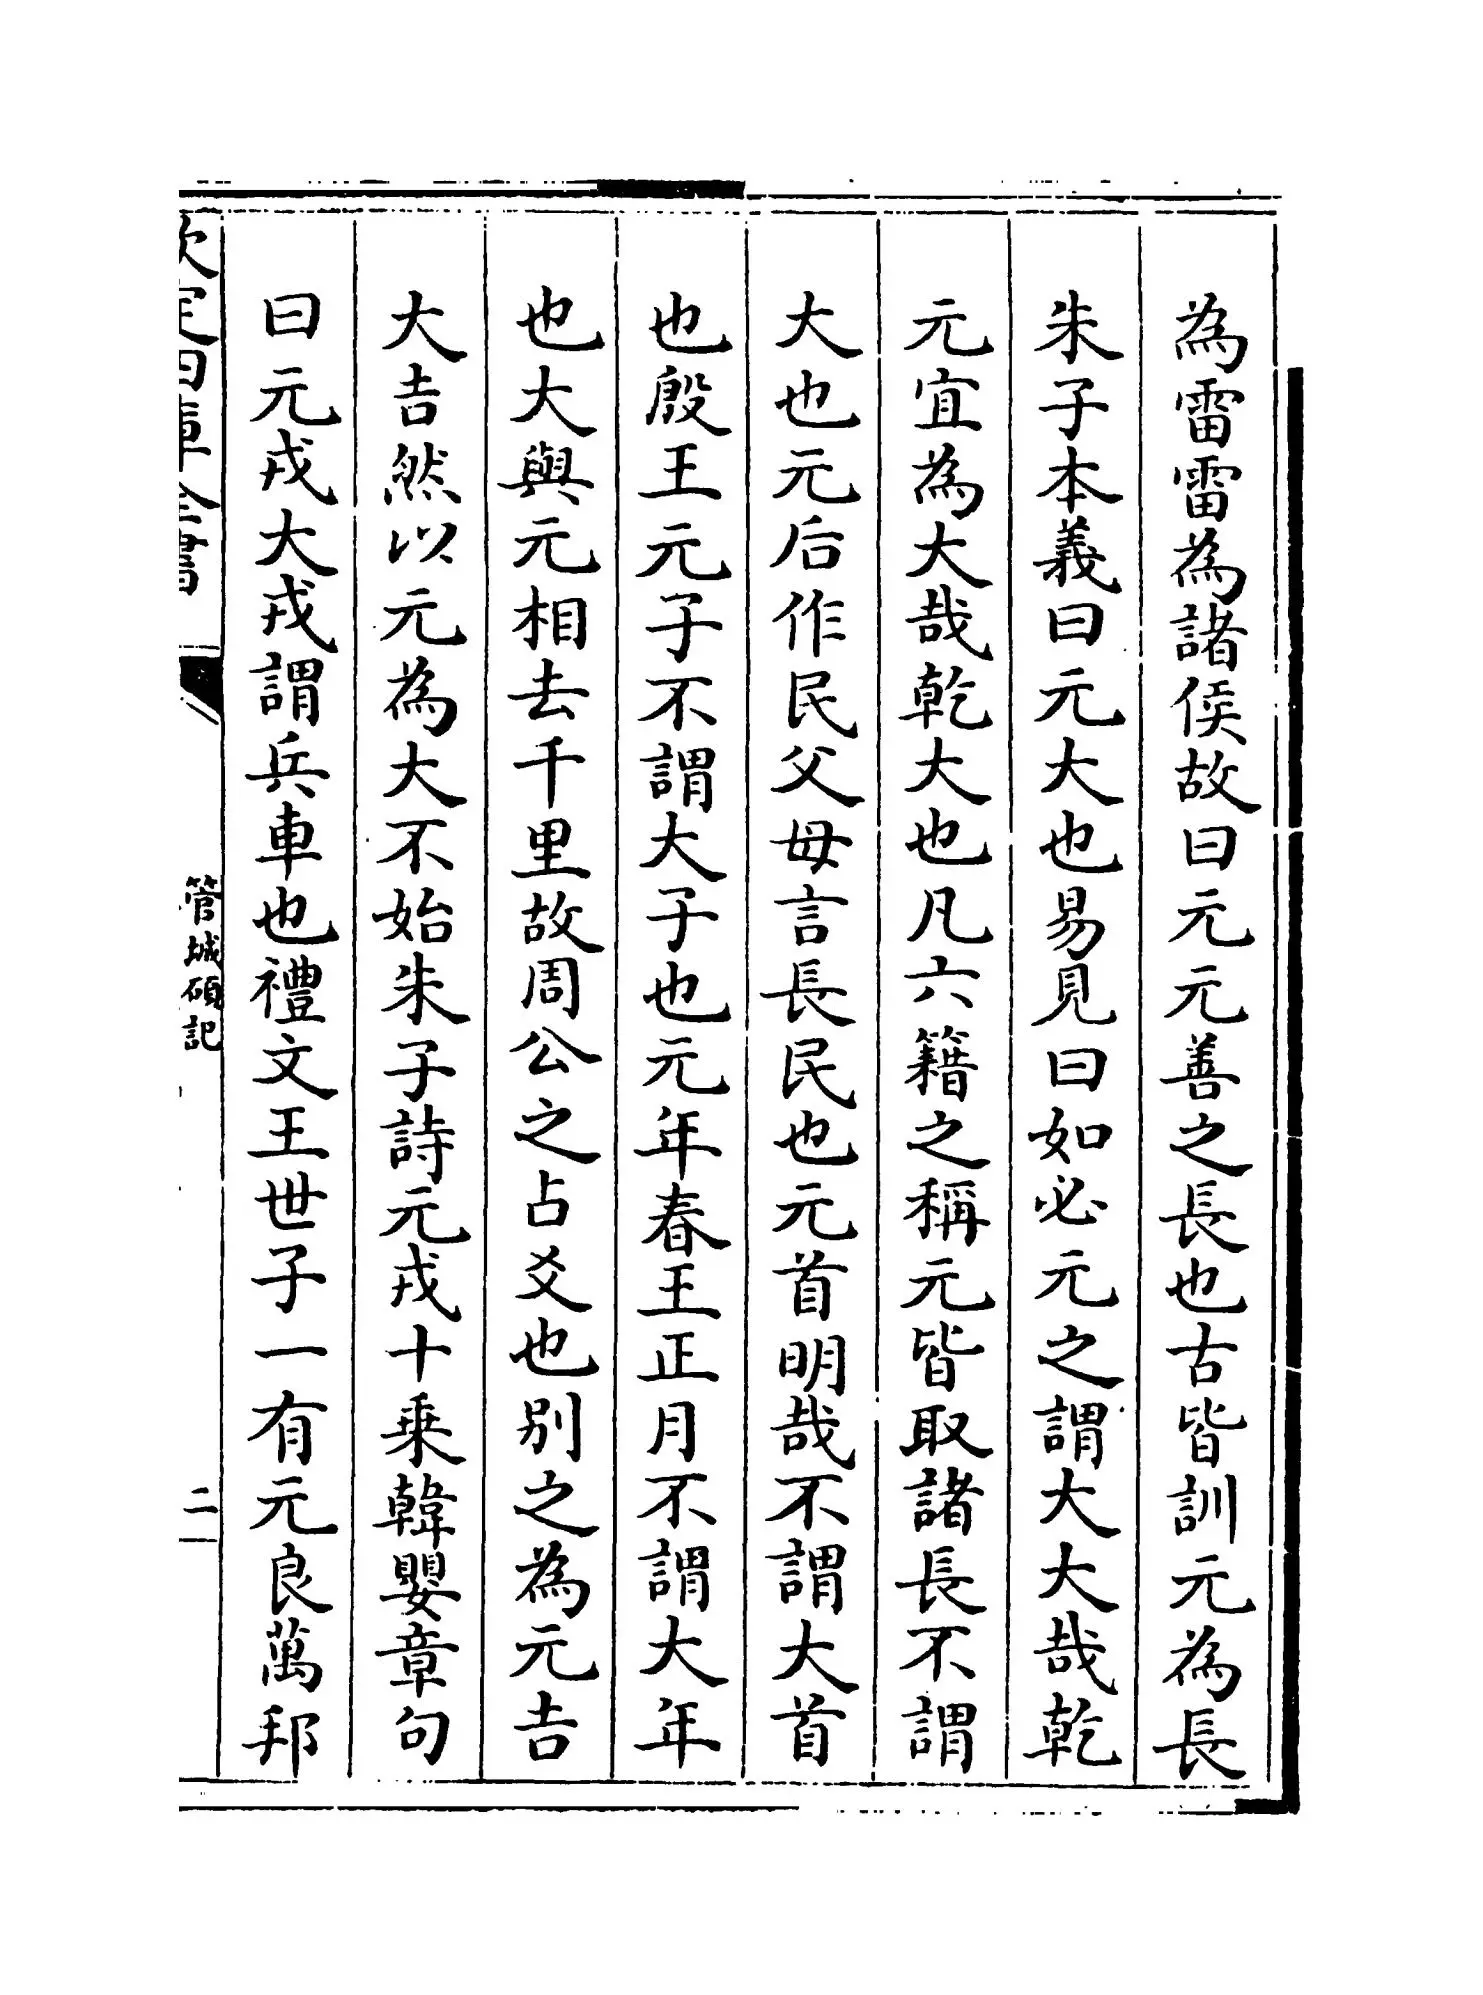 為雷雷為諸侯故曰元元善之長也古皆訓元為長
朱子本義曰元大也易見曰如必元之謂大大哉乾
元宜為大哉乾大也凡六籍之稱元皆取諸長不謂
大也元后作民父母言長民也元首明哉不謂大首
也殷王元子不謂大子也元年春王正月不謂大年
也大與元相去千里故周公之占爻也別之為元吉
大吉然以元為大不始朱子詩元戎十乗韓嬰章句
曰元戎大戎謂兵車也禮文王世子一有元良萬邦
欽定四庫全書
管城碩記
二